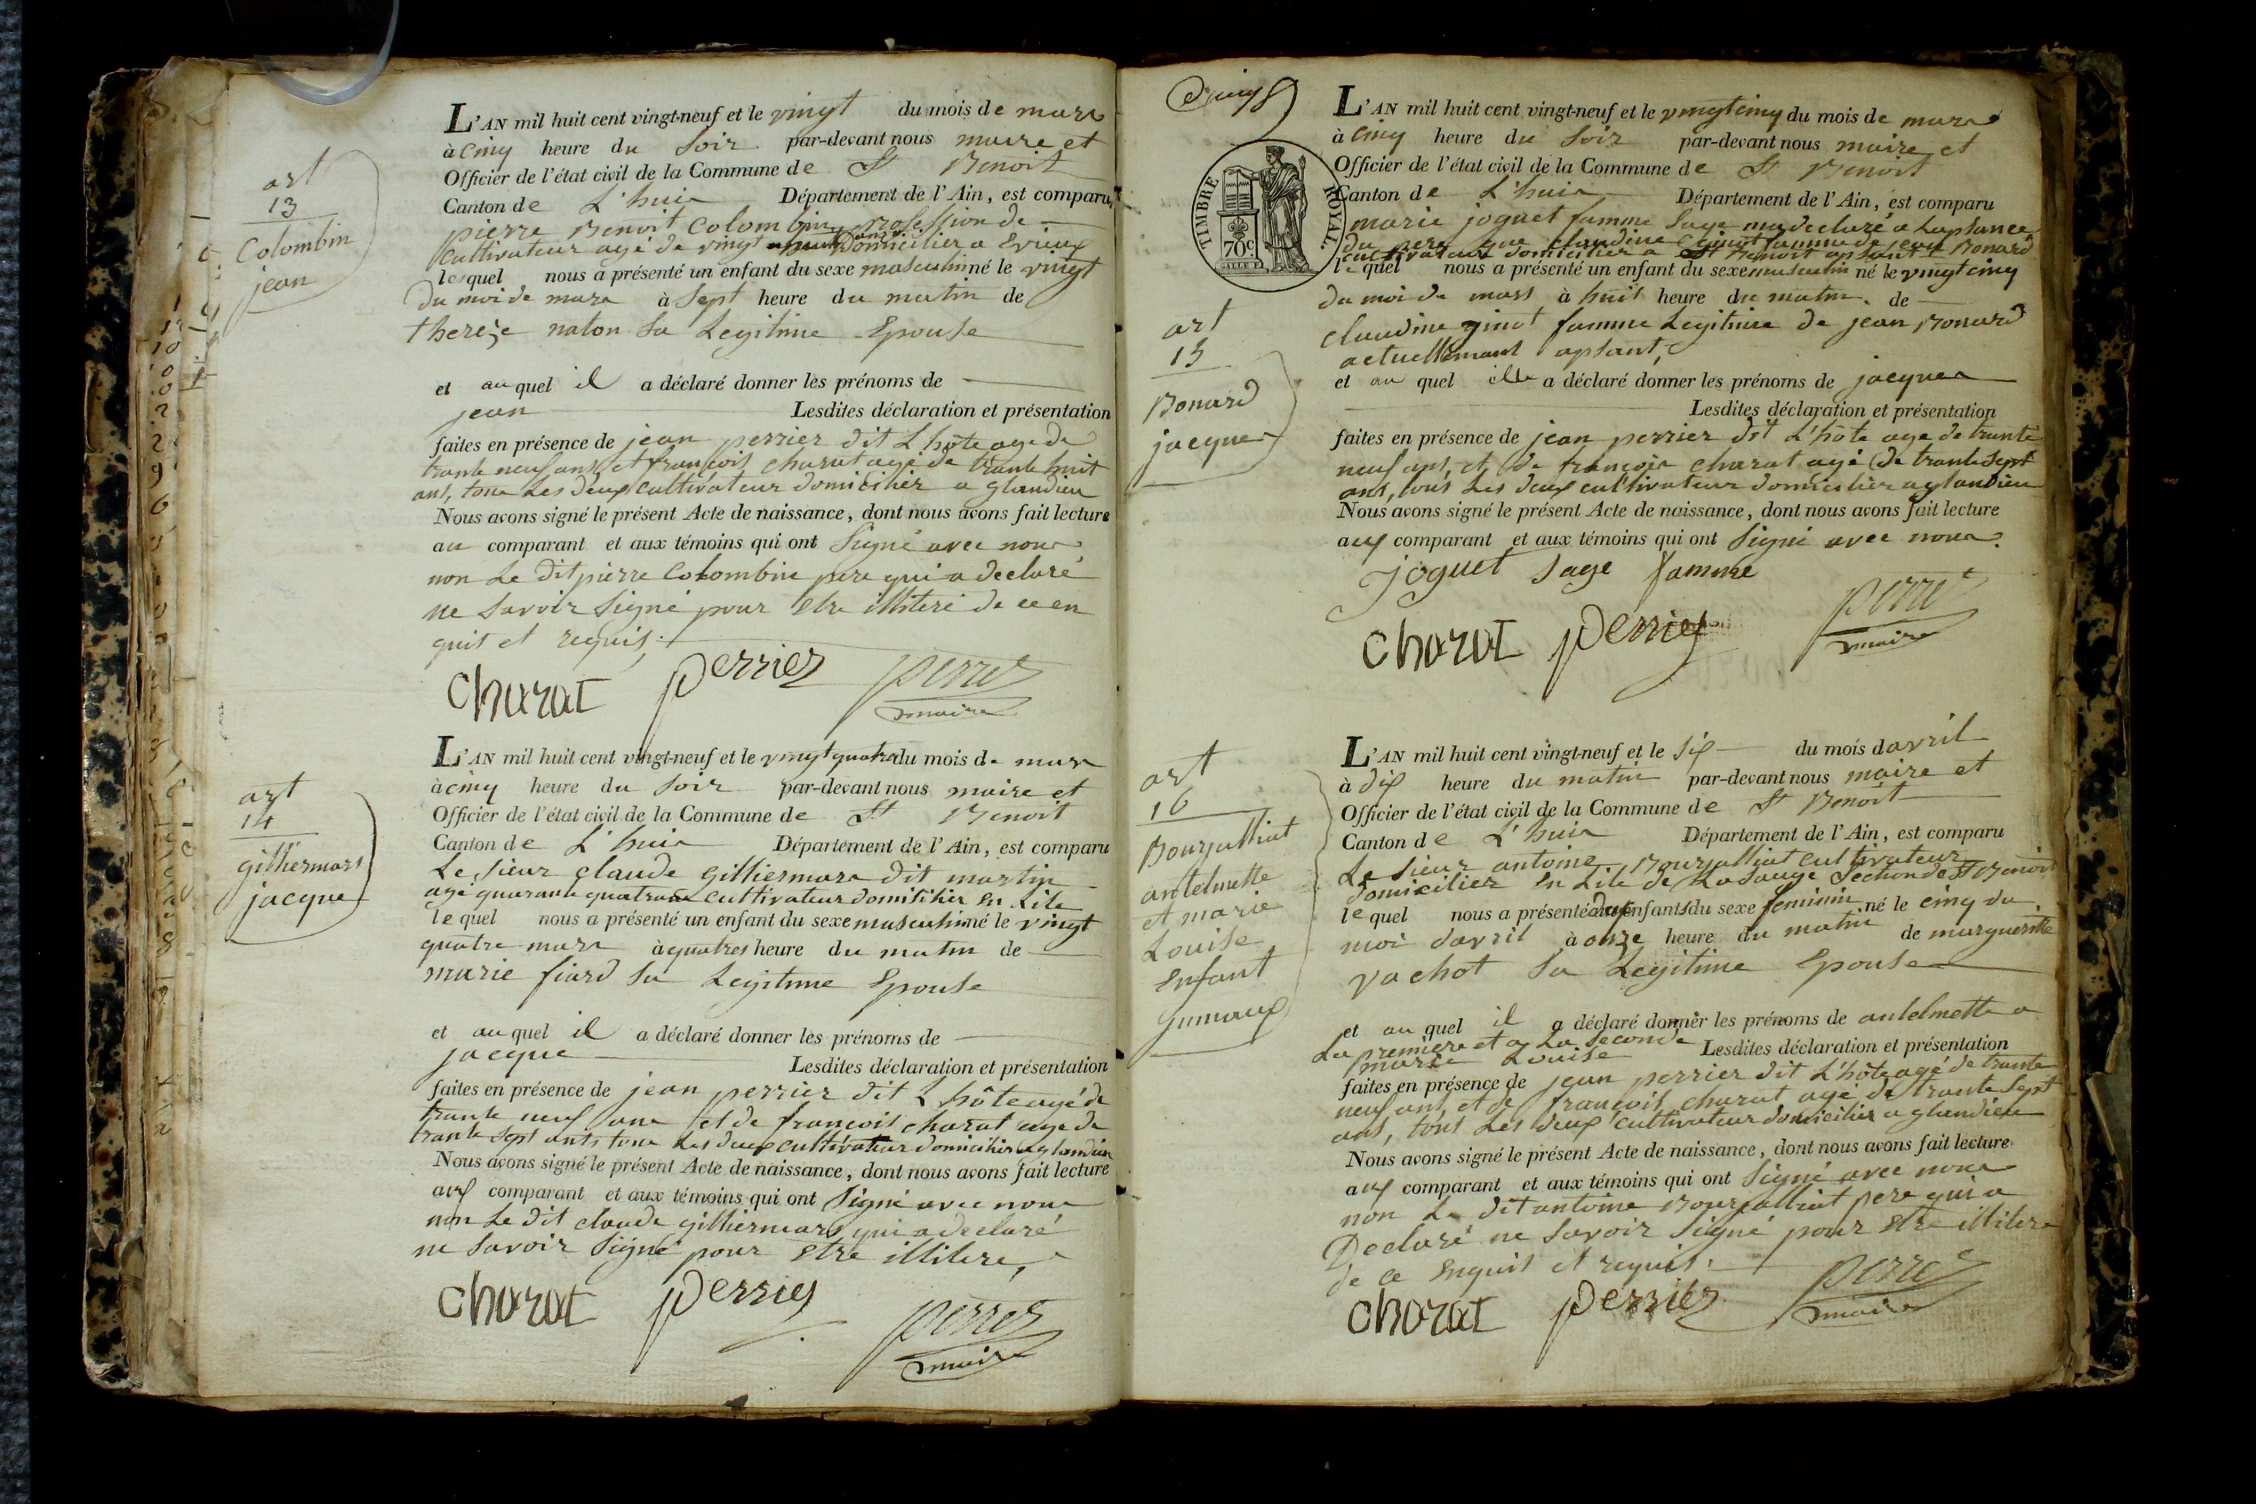 art
13
Colombin
jean
L'AN mil huit cent vingt-neuf et le vingt du mois de mars
à cinq heure du soir par-devant nous maire et
Officier de l'état civil de la Commune de St Benoit
Canton de L'huis Département de l'Ain, est comparu
pierre Benoit Colombin profession de
Cultivateur agé de vingt domicilier a Evieux
lequel nous a présenté un enfant du sexe masculin né le vingt
du moi de mars à sept heure du matin de
thereze naton sa Legitime Epouse
et au quel il a déclaré donner les prénoms de
jean Lesdites déclaration et présentation
faites en présence de jean perrier dit L'hôte age de
trante neuf ans, et françois charat agé de trante huit
ans, tous Les deux Cultivateur domicilier a glandieu
Nous avons signé le présent Acte de naissance, dont nous avons fait lecture
au comparant et aux témoins qui ont Signé avec nous
non Le dit pierre Colombin pere qui a declaré
ne Savoir Signé pour Etre illiteré de ce en
quit et requis;
Charat perrier perret
maire
art
14
gilliermars
jacque
L'AN mil huit cent vingt-neuf et le vingt quatre du mois de mars
à cinq heure du soir par-devant nous maire et
Officier de l'état civil de la Commune de St Benoit
Canton de L'huis Département de l'Ain, est comparu
Le sieur claude gilliermars dit martin
agé quarante quatre ans cultivateur domicilier En Lile
lequel nous a présenté un enfant du sexe masculin né le vingt
quatre mars à quatres heure du matin de
marie fiard sa Legitime Epouse
et au quel il a déclaré donner les prénoms de
jacque Lesdites déclaration et présentation
faites en présence de jean perrier dit L'hôte agé de
trante neuf ans et de françois charat agé de
trante sept ants tous Les deux cultivateur domicilier a glandieu
Nous avons signé le présent Acte de naissance, dont nous avons fait lecture
aux comparant et aux témoins qui ont Signé avec nous
non Le dit claude gilliermars qui a declaré
ne Savoir Signé pour Etre illitere,
Charat perrier perret
maire
TIMBRE ROYAL.
70c.
art
15
Bonard
jacques
L'AN mil huit cent vingt-neuf et le vingt cinq du mois de mars
à cinq heure du soir par-devant nous maire et
Officier de l'état civil de la Commune de St Benoit
Canton de L'huis Département de l'Ain, est comparu
marie joguet famme Sage ma declaré a Lapsance
du pere que claudine ginot famme de jean Bonard
cultivateur domicilier a St Benoit apsant
lequel nous a présenté un enfant du sexe masculin né le vingt cinq
du moi de mars à huit heure du matin de
claudine ginot famme Legitime de jean Bonard
actuellemant apsant,
et au quel elle a déclaré donner les prénoms de jacques
Lesdites déclaration et présentation
faites en présence de jean perrier dit L'hôte age de trante
neuf ans, et de françois charat agé de trante sept
ans, tous Les deux cultivateur domicilier a glandieu
Nous avons signé le présent Acte de naissance, dont nous avons fait lecture
aux comparant et aux témoins qui ont Signé avec nous.
Joguet sage famme
Charat perrier perret
maire
art
16
Bourjalliat
antelmette
et marie
Louise
Enfant
jumaux
L'AN mil huit cent vingt-neuf et le six du mois davril
à dix heure du matin par-devant nous maire et
Officier de l'état civil de la Commune de St Benoit
Canton de L'huis Département de l'Ain, est comparu
Le sieur antoine Bourjalliat cultivateur
domicilier En Lile de La Sauge section de St Benoit
lequel nous a présenté deux enfants du sexe feminin né le cinq du
moi davril à onze heure du matin de margueritte
vachot sa Legitime Epouse
et au quel il a déclaré donner les prénoms de antelmette a
La premiere et a La seconde
marie Louise Lesdites déclaration et présentation
faites en présence de jean perrier dit L'hôte agé de trante
neuf ans, et de françois charat agé de trante sept
ans, tous Les deux cultivateur domicilier a glandieu
Nous avons signé le présent Acte de naissance, dont nous avons fait lecture
aux comparant et aux témoins qui ont Signé avec nous
non Le dit antoine Bourjalliat pere qui a
Declaré ne Savoir Signé pour Etre illitere
de ce Enquit et requis.
Charat perrier perret
maire